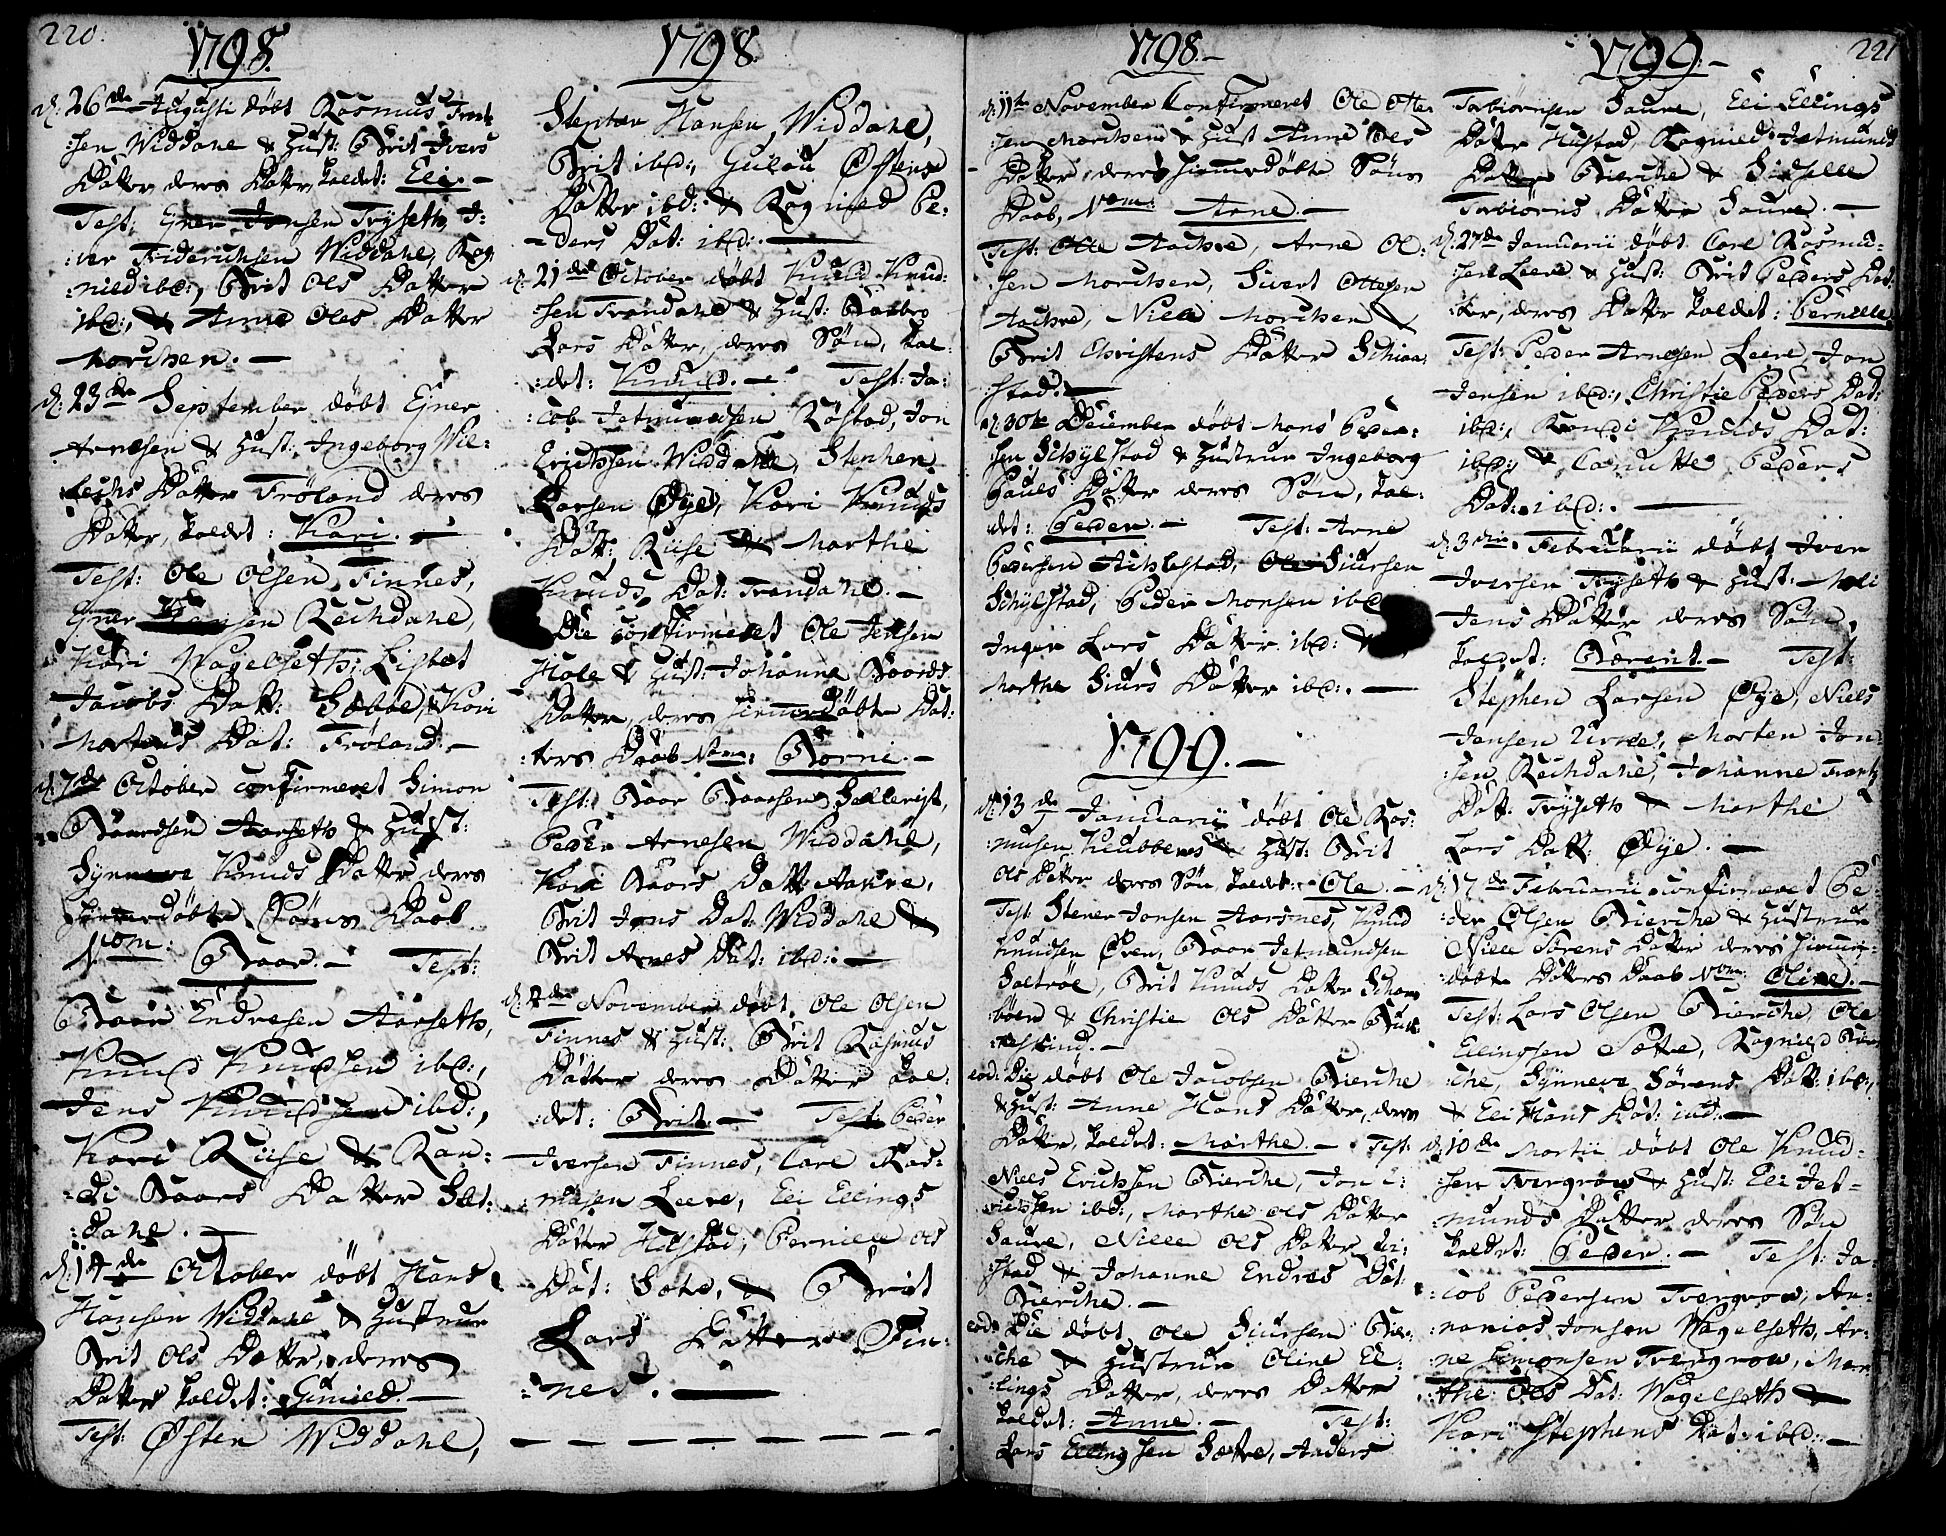 220.
1798.
d: 26de Augusti døbt Rasmus Tront
:sen Widdahl & Hust: Brit Ivers
Datter, deres Datter, kaldet: Eli. —
Test: Ejner Jonsen Trÿseth, I:
:ver Friderichsen Widdahl, Rag
:nild ibd:, Brit Ols Datter
ibd:, & Anne Oles Datter
Morchen. —
d: 23de September døbt Ejner
Arnesen & Hust: Ingeborg Wil:
:lechs Datter Frøland deres
Datter, kaldet: Kari. —
Test: Ole Olsen Finnes,
Ejner Hansen Rechdahl,
Kari Wagelseth, Lisbet
Jacobs Datt: Sæbøe, & Kari
Mortens Dat: Frøland. —
d: 7de October confirmeret Simon
Baardsen Aarseth & Hust:
Synneve Knuds Datter deres
hiemmedøbte Søns Daab
Nom: Baar. — Test:
Baar Endresen Aarseth,
Knud Knudsen ibd:,
Jens Knudsen ibd:,
Kari Riise & Ran:
:di Baars Datter Sæt:
:dahl. —
d: 14de October døbt Hans
Hansen Widdahl & Hustrue
Brit Ols Datter, deres
Datter kaldet: Gunild —
Test: Østen Widdahl,
1798
Stephen Hansen, Widdahl,
Brit ibd:, Guloü Østens
Datter ibd: & Ragnild Pe:
:ders Dat: ibd:. —
d: 21de October døbt Knud Knud:
:sen Trandahl & Hust: Barbro
Lars Datter, deres Søn, kal:
:det: Knud. — Test: Ja:
:cob Jetmundsen Røstad, Jon
Erichsen Widdahl, Stephen
Larsen Øye, Kari Knuds
Datt: Riise & Marthe
Knuds Dat: Trandahl. —
Die confirmeret Ole Jensen
Hole & Hust: Johanne Baards
Datter, deres hiemmedøbte Dat:
:ters Daab Nom: Borni. —
Test: Baar Baarsen Hellevigt,
Peder Arnesen Widdahl,
Kari Baars Datt: Aakre,
Brit Jons Dat: Widdahl &
Brit Arnes Dat: ibd: —
d: 4de November døbt Ole Olsen
Finnes & Hust: Brit Rasmus
Datter deres Datter kal:
:det: Brit — Test: Peder
Iversen Finnes, Carl Ras:
:musen Leere, Eli Ellings
Datter Hustad, Pernille Ols
Dat: Sætre, & Brit
Lars Datter Fin:
:nes. —
1798. —
d: 11te November Confirmeret Ole Otte
:sen Morchen & Hust Anne Oles
Datter, deres hiemmedøbte Søns
Daab, Nom: Arne. —
Test: Olle Aachre, Arne Ol:
:sen Morchen, Sivert Ottesen
Aachre, Nille Morchen &
Brit Christens Datter Schiaa:
:stad. —
d: 30te December døbt Mons Peder:
:sen Schÿlstad & Hustrue Ingeborg
Pouls Datter deres Søn, kal:
det: Peder. — Test: Arne
Pedersen Achlestad, Ole Siursen
Schÿlstad, Peder Monsen ibd
Inger Lars Datter ibd: &
Marthe Siurs Datter ibd:. —
1799. —
d: 13de Januarii døbt Ole Ras:
:musen Kiubbenes & Hust: Brit
Ols Datter deres Søn kaldet: Ole. —
Test Stener Jonsen Aarsnes, Knud
Knudsen Øren, Baar Jetmundsen
Saltrøe, Brit Knuds Datter Schaar
bøen & Christie Ols Datter Bust
eod: Die døbt Ole Jacobsen Bierche
& Hust: Anne Hans Datter, deres
Datter, kaldet: Marthe. — Test:
Niels Erichsen Bierche, Jon E:
:richsen ibd:, Marthe Ols Datter
Saure, Nille Ols Datter Hu:
:stad & Johanne Endres Dat:
Bierche. —
eod: Die døbt Ole Siursen Bier:
:che & Hustrue Oline El:
:lings Datter, deres Datter
kaldet: Anne. — Test:
Lars Ellingsen Sætre, Anders
1799. —
221
Torbiörnsen Saure, Eli Ellings
Datter Hustad, Ragnild Jetmunds
Datter Bierche & Sidselle
Torbiörns Datter Saure. —
d: 27de Januarii døbt Carl Rasmu:
:sen Leere & Hust: Brit Peders Dat
:ter, deres Datter kaldet: Pernille.
Test: Peder Arnesen Leere, Jon
Jensen ibd:, Christie Peders Dat:
ibd:, Randi Knuds Dat:
ibd: & Canutte Peders
Dat: ibd: —
d: 3die Februarii døbt Iver
Iversen Trÿseth & Hust: Mali
Jens Datter deres Søn,
kaldet: Berent. — Test:
Stephen Larsen Øye, Niels
Jensen Urke, Morten Jon:
:sen Rechdahl, Johanne Tronts
Datt: Trÿseth & Marthe
Lars Datt: Øÿe. —
d: 17de Februarii confirmeret Pe:
:der Olsen Bierche & Hustrue
Nille Sørens Datter deres hiemme:
:døbte Datters Daab Nom: Oline. —
Test: Lars Olsen Bierche, Ole
Ellingsen Sætre, Ragnild Bier
:che, Synneve Sørens Datt: ibd:,
& Eli Hans Dat: ibd: —
d: 10de Martii døbt Ole Knud:
:sen Tvergrow & Hust: Eli Jet:
:munds Datter deres Søn
kaldet: Peder. — Test: Ja:
:cob Pedersen Tvergrow, An:
:nanias Jonsen Wagelseth, Ar:
:ne Simonsen Tvergrow, Mar
:the Ols Dat: Wagelseth &
Kari Stephens Dat: ibd: —